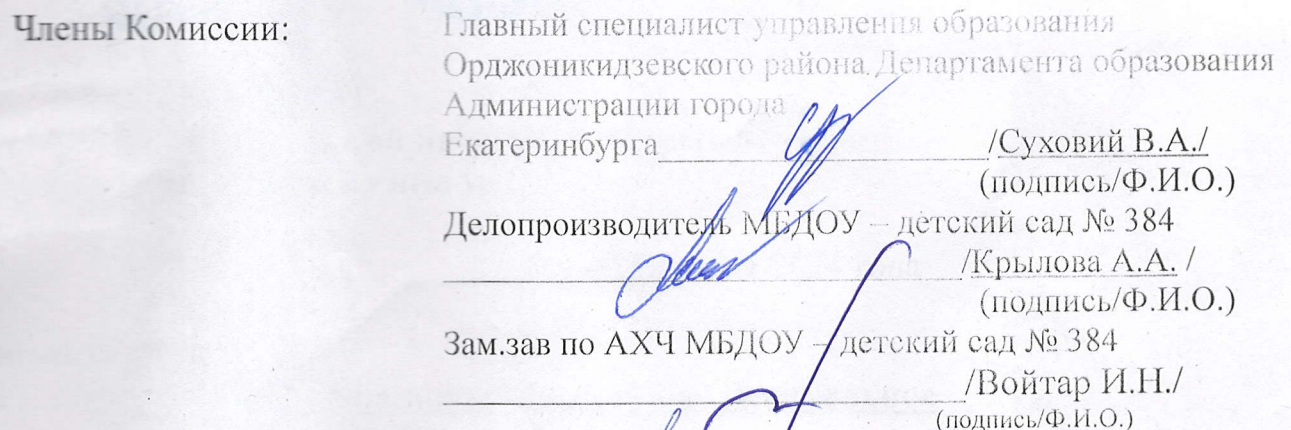 Члены Комиссии:
Главный специалист управления образования
Орджоникидзевского района Департамента образования
Администрации города
Екатеринбурга /Суховий В.А./
(подпись/Ф.И.О.)
Делопроизводитель МБДОУ – детский сад № 384
/Крылова А.А. /
(подпись/Ф.И.О.)
Зам.зав по АХЧ МБДОУ – детский сад № 384
/Войтар И.Н./
(подпись/Ф.И.О.)